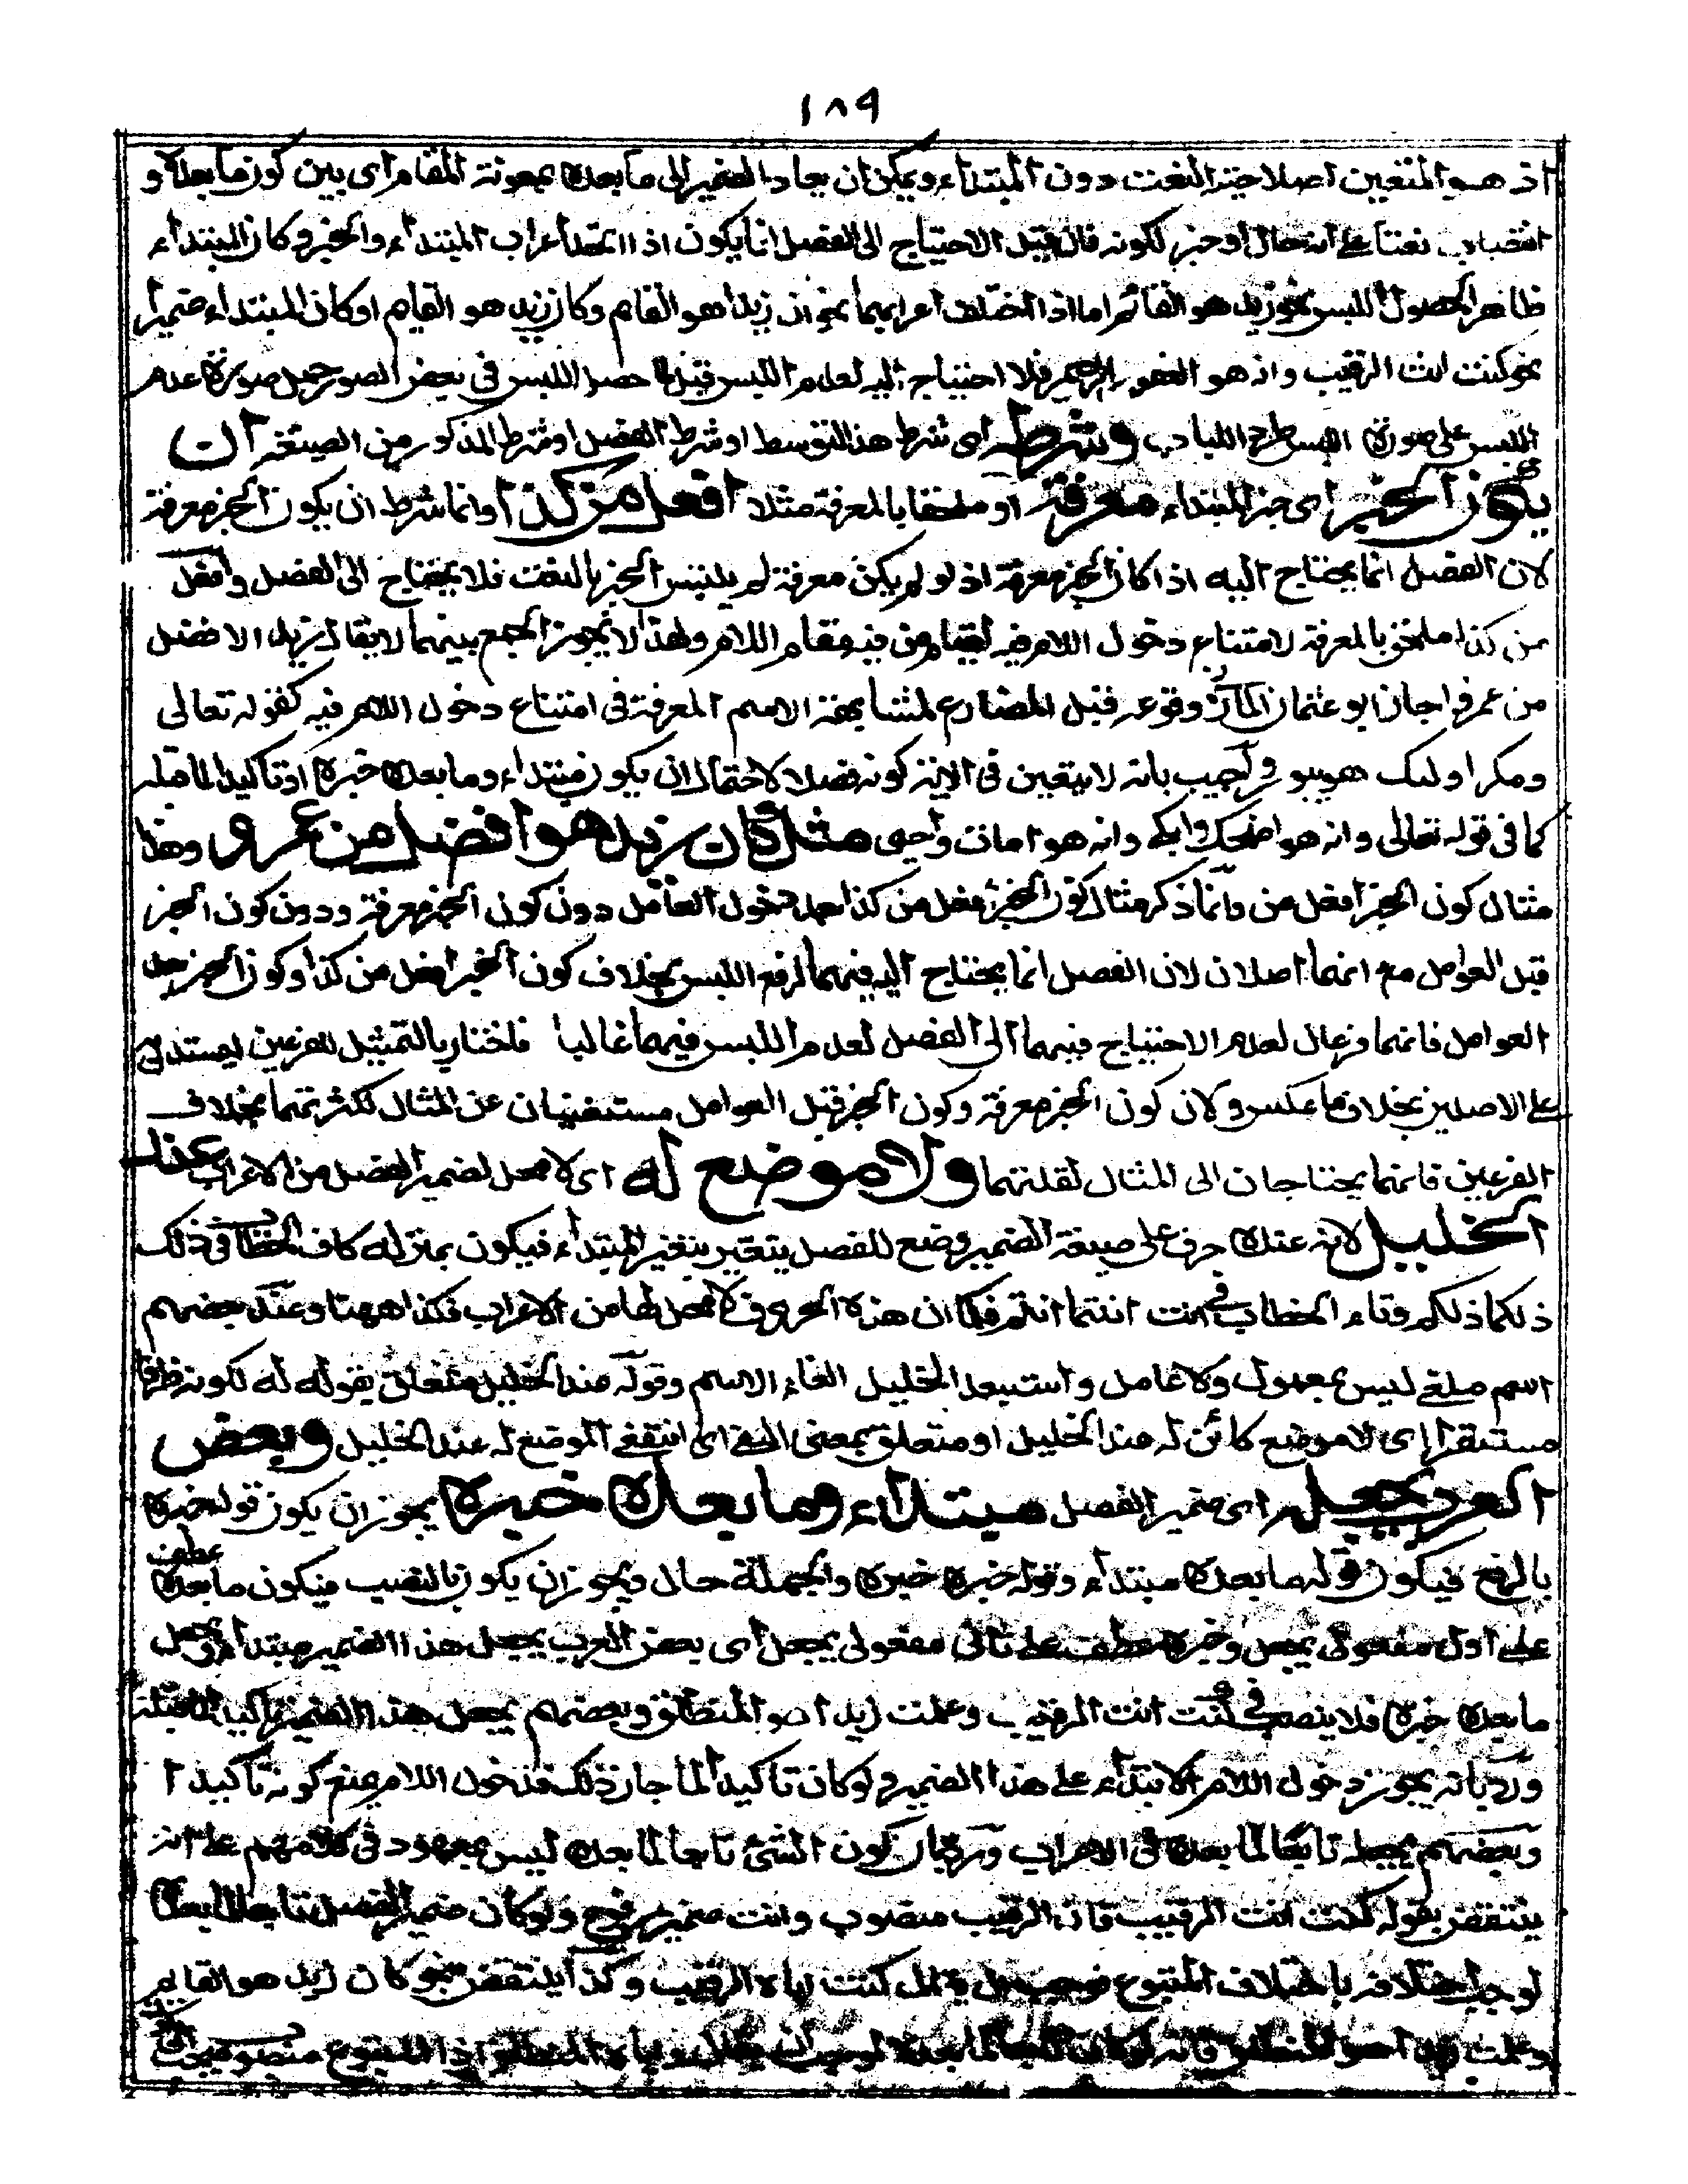 ١٨٩
اذ هو المتعين اصلاحية النعت دون المبتداء ويمكن ان يعاد الضمير الى ما بعده بمعونة المقام اى بين كون ما بعده و
نعتا على انه حال او خبر لكونه فان قيل الاحتياج الى الفصل انما يكون اذا اتحد اعراب المبتداء والخبر وكان المبتداء
ظاهرا لحصول اللبس نحو زيد هو القائم اما اذا اختلف اعرابهما نحو ان زيدا هو القايم وكان زيد هو القايم او كان المبتداء ضميرا
نحو كنت انت الرقيب وانه هو الغفور الرحيم فلا احتياج اليه لعدم اللبس قيل لما حصل اللبس فى بعض الصور حمل صورة عدم
اللبس على صورة اللبس طرح اللباب وشرطه اى شرط هذا التوسط او شرط الفصل او شرط المذكور من الصيغة ان
يكون الخبر اى خبر المبتداء معرفة او ملحقا بالمعرفة مثلا افعل من كذا وانما شرط ان يكون الخبر معرفة
لان الفصل انما يحتاج اليه اذا كان الخبر معرفة اذ لو لم يكن معرفة لم يلتبس الخبر بالنعت فلا يحتاج الى الفصل وافعل
من كذا ملحق بالمعرفة لامتناع دخول اللام فيه لقيام من فيه مقام اللام ولهذا لا يجوز الجمع بينهما لا يقال زيد الافضل
من عمرو اجاز ابو عثمان المازنى وقوعه قبل المضارع لمشابهته الاسم المعرفة فى امتناع دخول اللام فيه كقوله تعالى
ومكر اولئك هو يبور واجيب بانه لا يتعين فى الاية كونه فصلا لاحتمال ان يكون مبتداء وما بعده خبره او تاكيدا لما قبله
كما فى قوله تعالى وانه هو اضحك وابكى وانه هو امات واحيى مثل كان زيد هو افضل من عمرو وهذا
مثال كون الخبر افعل من وانما ذكر مثال كون الخبر افعل من كذا بعد دخول العامل دون كون الخبر معرفة ودون كون الخبر
قبل العوامل مع انهما اصلان لان الفصل انما يحتاج اليه فيهما لرفع اللبس بخلاف كون الخبر افعل من كذا وكون الخبر بعد
العوامل فانهما فرعان لعدم الاحتياج فيهما الى الفصل لعدم اللبس فيهما غالبا فاختار بالتمثيل الفرعين ليستدل بهما
على الاصلين بخلاف ما عكس ولان كون الخبر معرفة وكون الخبر قبل العوامل مستغنيان عن المثال لكثرتهما بخلاف
الفرعين فانهما يحتاجان الى المثال لقلتهما ولا موضع له اى لا محل لضمير الفصل من الاعراب عند
الخليل لانه عنده حرف على صيغة الضمير وضع للفصل يتغير بتغير المبتداء فيكون بمنزلة كاف الخطاب فى ذلك
ذلكما ذلكم وتاء الخطاب فى انت انتما انتم فكما ان هذه الحروف لا محل لها من الاعراب فكذا ههنا وعند بعضهم
اسم ملغى ليس بمعمول ولا عامل واستبعد الخليل الغاء الاسم وقوله عند الخليل متعلق بقوله له لكونه ظرفا
مستقرا اى لا موضع كائن له عند الخليل او متعلق بمعنى النفى اى انتفى الموضع له عند الخليل وبعض
العرب يجعله اى ضمير الفصل مبتداء وما بعده خبره يجوز ان يكون قوله خبره
بالرفع فيكون قوله ما بعده مبتداء وقوله خبره خبره والجملة حال ويجوز ان يكون بالنصب فيكون ما بعده عطف
على اول مفعولى يجعل وخبره عطف على ثانى مفعولى يجعل اى بعض العرب يجعل هذا الضمير مبتداء ويجعل
ما بعده خبره فلا ينصب فى كنت انت الرقيب وعلمت زيدا هو المنطلق وبعضهم يجعل هذا الضمير تاكيدا لما قبله
ورد بانه يجوز دخول اللام الابتداء على هذا الضمير ولو كان تاكيدا لما جاز ذلك فدخول اللام يمنع كونه تاكيدا
وبعضهم يجعله تابعا لما بعده فى الاعراب ورد بان كون الشئ تابعا لما بعده ليس بمعهود فى كلامهم على انه
ينتقض بقوله كنت انت الرقيب فان الرقيب منصوب وانت ضمير مرفوع ولو كان ضمير الفصل تابعا لما بعده
لوجب اختلافه باختلاف المتبوع كنت اياه الرقيب وكذا ينتقض بنحو كان زيد هو القايم
وعلمت زيدا هو المنطلق فانه لو كان تابعا لما بعده لوجب ان اياه المنطلق اذ المتبوع منصوب